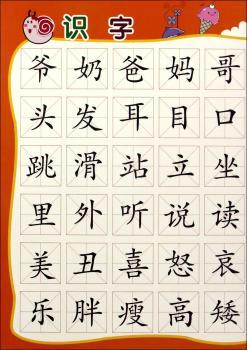 识字
爷奶爸妈哥
头发耳目口
跳滑站立坐
里外听说读
美丑喜怒哀
乐胖瘦高矮